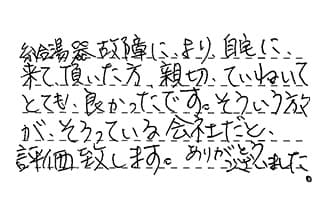 給湯器故障に、より、自宅に、
来て、頂いた方、親切、ていねいで
とても、良かったです。そういう方
が、そろっている会社だと、
評価致します。ありがとうございました。